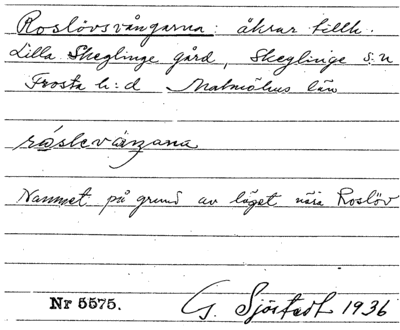 Roslövsvångarna: åkrar tillh.
Lilla Skeglinge gård, Skeglinge s:n
Frosta h:d Malmöhus län
Namnet på grund av läget nära Roslöv
Nr 5575. G. Sjöstedt 1936